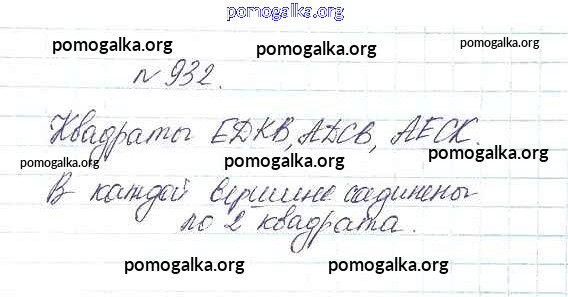 pomogalka.org
pomogalka.org pomogalka.org
n 932.
Квадраты EDKB, ADCB, AECK.
pomogalka.org pomogalka.org pomogalka.org
В каждой вершине соединены
по 2 квадрата.
pomogalka.org pomogalka.org